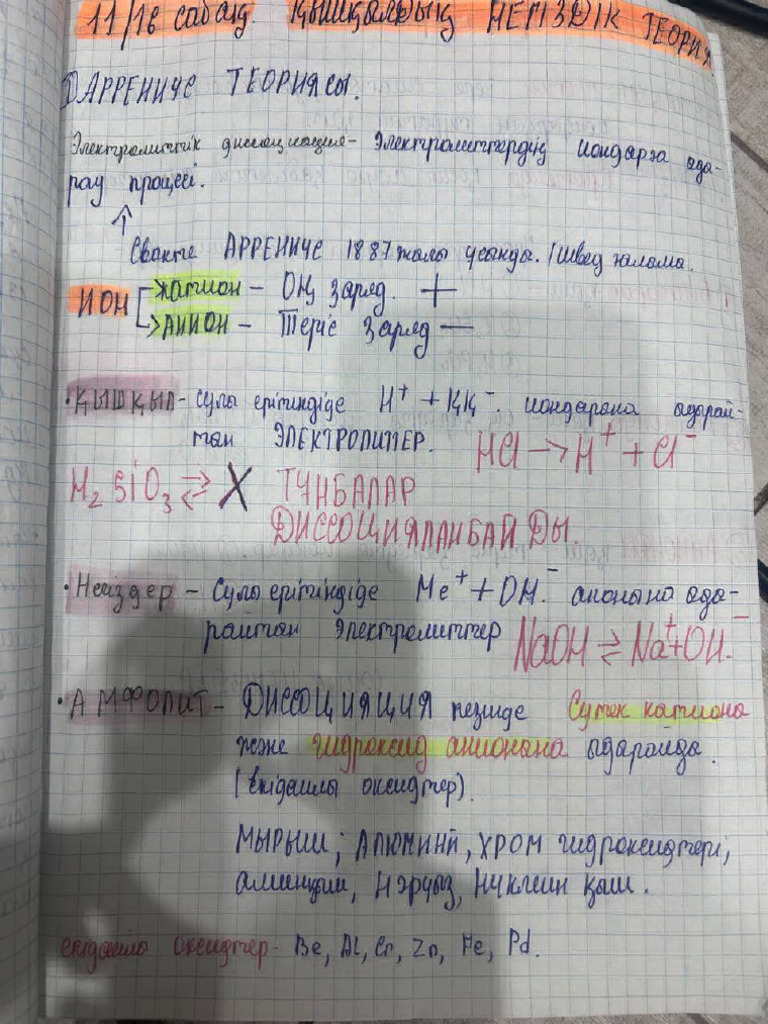 11/16 сабақ. ҚЫШҚЫЛДЫҚ НЕГІЗДІК ТЕОРИЯ
1) АРРЕНИУС ТЕОРИЯсы.
Электролиттік диссоциация - Электролиттердің иондарға ыды-
рау процесі.
↑
Сванте АРРЕНИУС 1887 жылы ұсынды. /Швед ғалымы.
ИОН катион - Оң заряд. +
→ АНИОН - Теріс заряд —
• ҚЫШҚЫЛ - сулы ерітіндіде H⁺ + ҚҚ⁻. иондарына ыдырай-
тын ЭЛЕКТРОЛИТТЕР. HCl → H⁺ + Cl⁻
H₂SiO₃ ⇄ X ТҰНБАЛАР
ДИССОЦИЯЛАНБАЙДЫ.
• Негіздер - Сулы ерітіндіде Me⁺ + OH.⁻ анонына ыды-
райтын электролиттер NaOH ⇄ Na⁺+OH.⁻
• АМФОЛИТ - ДИССОЦИЯЦИЯ кезінде Сутек катионы
және гидроксид анионына ыдырайды.
(екідайлы оксидтер).
МЫРЫШ; АЛЮМИНИЙ, ХРОМ гидроксидтері,
аминқыш, Нәруыз, Нуклеин қыш.
екідайлы оксидтер - Be, Al, Cr, Zn, Fe, Pd.